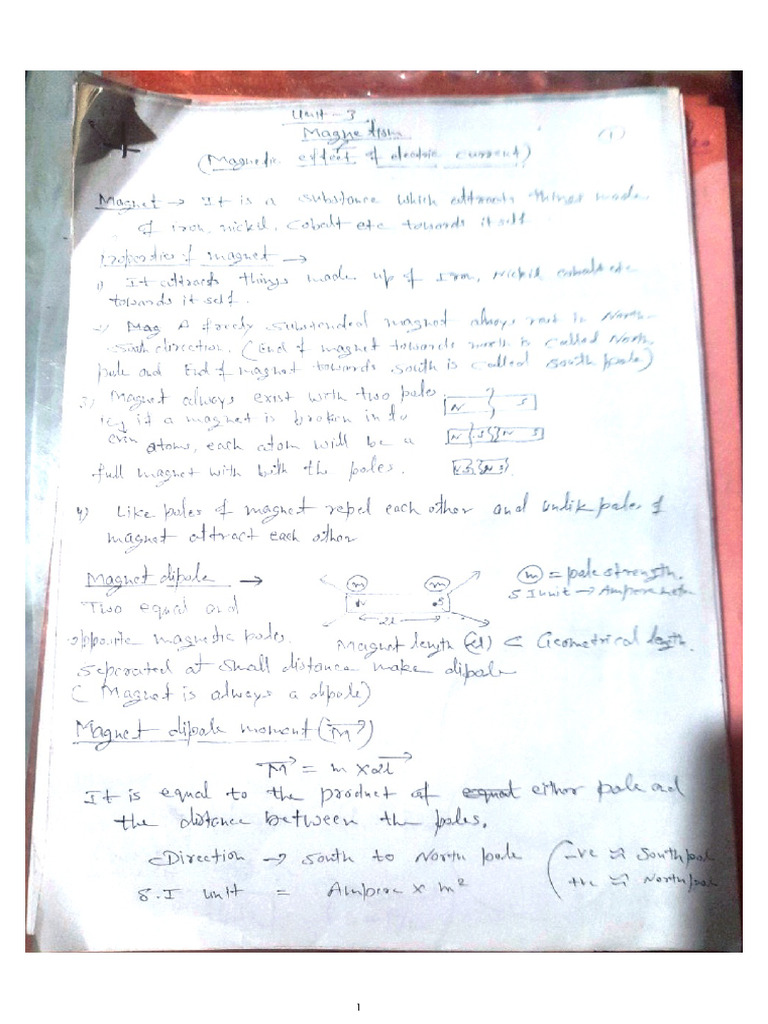 Unit - 3
Magnetism
(1)
(Magnetic effect of electric current)
Magnet → It is a substance which attracts things made
of iron, nickel, Cobalt etc towards itself
Properties of magnet →
1) It attracts things made up of Iron, Nickel cobalt etc
towards it self.
2) Mag A freely suspended magnet always rest in North-
South direction. (End of magnet towards north is called North
pole and End of magnet towards south is called South pole)
3) Magnet always exist with two poles
ie, if a magnet is broken into
even atoms, each atom will be a
full magnet with both the poles.
N S
N S N S
N S N S
4) Like poles of magnet repel each other and unlik poles of
magnet attract each other
Magnet dipole →
m m
N S
2l
m = pole strength.
S I unit → Ampere metre
Two equal and
opposite magnetic poles.
Magnet length (2l) < Geometrical length.
seperated at small distance make dipole
( Magnet is always a dipole)
Magnet dipole moment (M)
M = m x 2l
It is equal to the product of equal either pole and
the distance between the poles.
Direction → South to North pole
(-ve ⇒ South pole
+ve ⇒ North pole
S.I unit = Ampere x m²
1